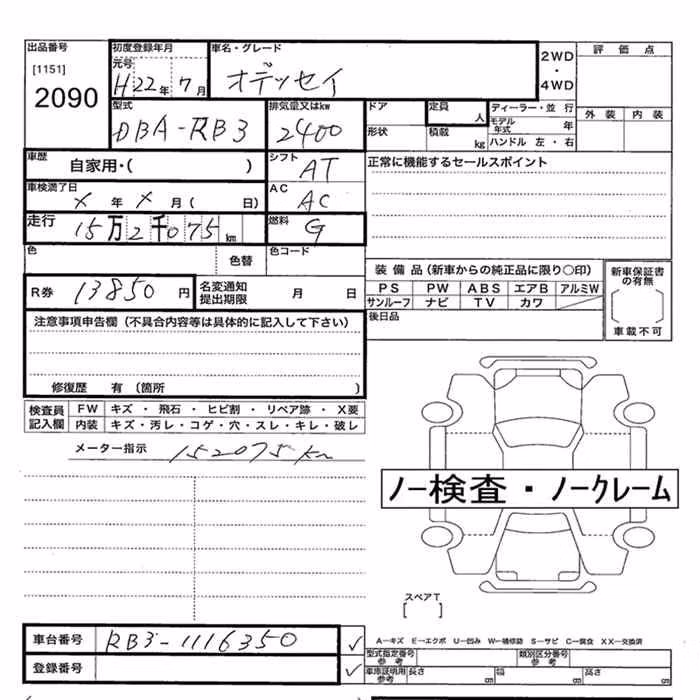 出品番号
[1151]
2090
初度登録年月
元号
H22年 7月
車名・グレード
オデッセイ
2WD
・
4WD
評価点
外装 内装
型式
DBA-RB3
排気量又はkw
2400
ドア
形状
定員 人
積載 kg
ディーラー・並行
モデル年式 年
ハンドル 左・右
車歴
自家用・( )
シフト
AT
正常に機能するセールスポイント
車検満了日
× 年 × 月 ( 日)
AC
AC
走行
15万2千075km
燃料
G
色
色替
色コード
R券
13850円
名変通知
提出期限
月 日
装備品(新車からの純正品に限り○印)
PS PW ABS エアB アルミW
サンルーフ ナビ TV カワ
後日品
新車保証書
の有無
[ ]
車載不可
注意事項申告欄(不具合内容等は具体的に記入して下さい)
修復歴 有(箇所 )
検査員
記入欄
FW キズ・飛石・ヒビ割・リペア跡・X要
内装 キズ・汚レ・コゲ・穴・スレ・キレ・破レ
メーター指示 152075km
ノー検査・ノークレーム
スペアT
[ ]
車台番号 RB3-1116350 ✓
登録番号 ✓
A-キズ E-エクボ U-凹み W-補修跡 S-サビ C-腐食 XX-交換済
型式指定番号
参考
類別区分番号
参考
車庫証明用
参考
長さ cm 幅 cm 高さ cm